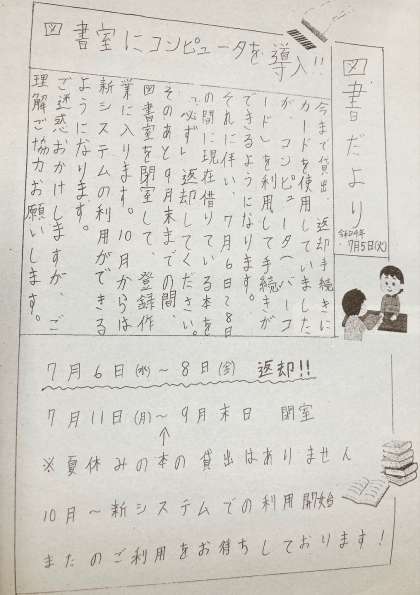 図書室にコンピュータを導入!!
図書だより
令和4年
7月5日(火)
今まで貸出 返却手続きに
カードを使用していました
が、コンピュータ(バーコ
ード)を利用して手続きが
できるようになります。
それに伴い、7月6日~8日
の間に現在借りている本を
「必ず」返却してください。
そのあと9月末までの間、
図書室を閉室して、登録作
業に入ります。10月からは
新システムの利用ができる
ようになります。
ご迷惑おかけしますが、ご
理解ご協力お願いします。
7月6日(水)~8日(金) 返却!!
7月11日(月)~9月末日 閉室
※夏休みの本の貸出はありません
10月~新システムでの利用開始
またのご利用をお待ちしております!